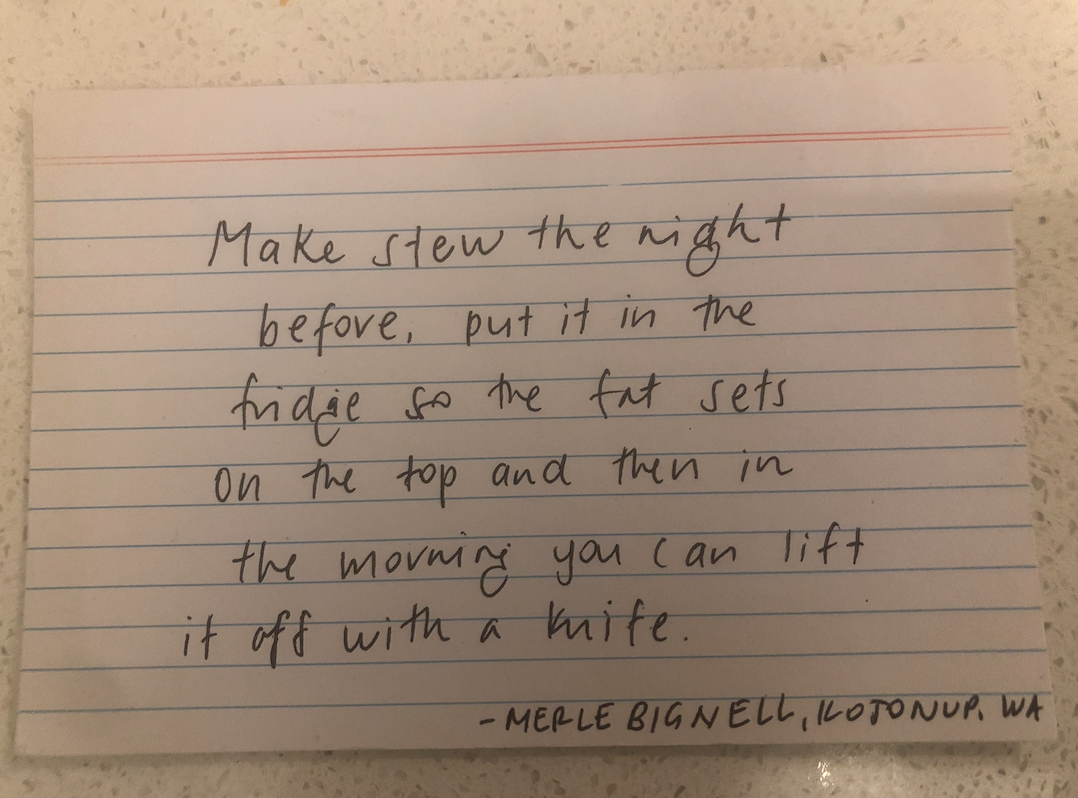 Make stew the night
before, put it in the
fridge so the fat sets
on the top and then in
the morning you can lift
it off with a knife.
- MERLE BIGNELL, KOJONUP. WA